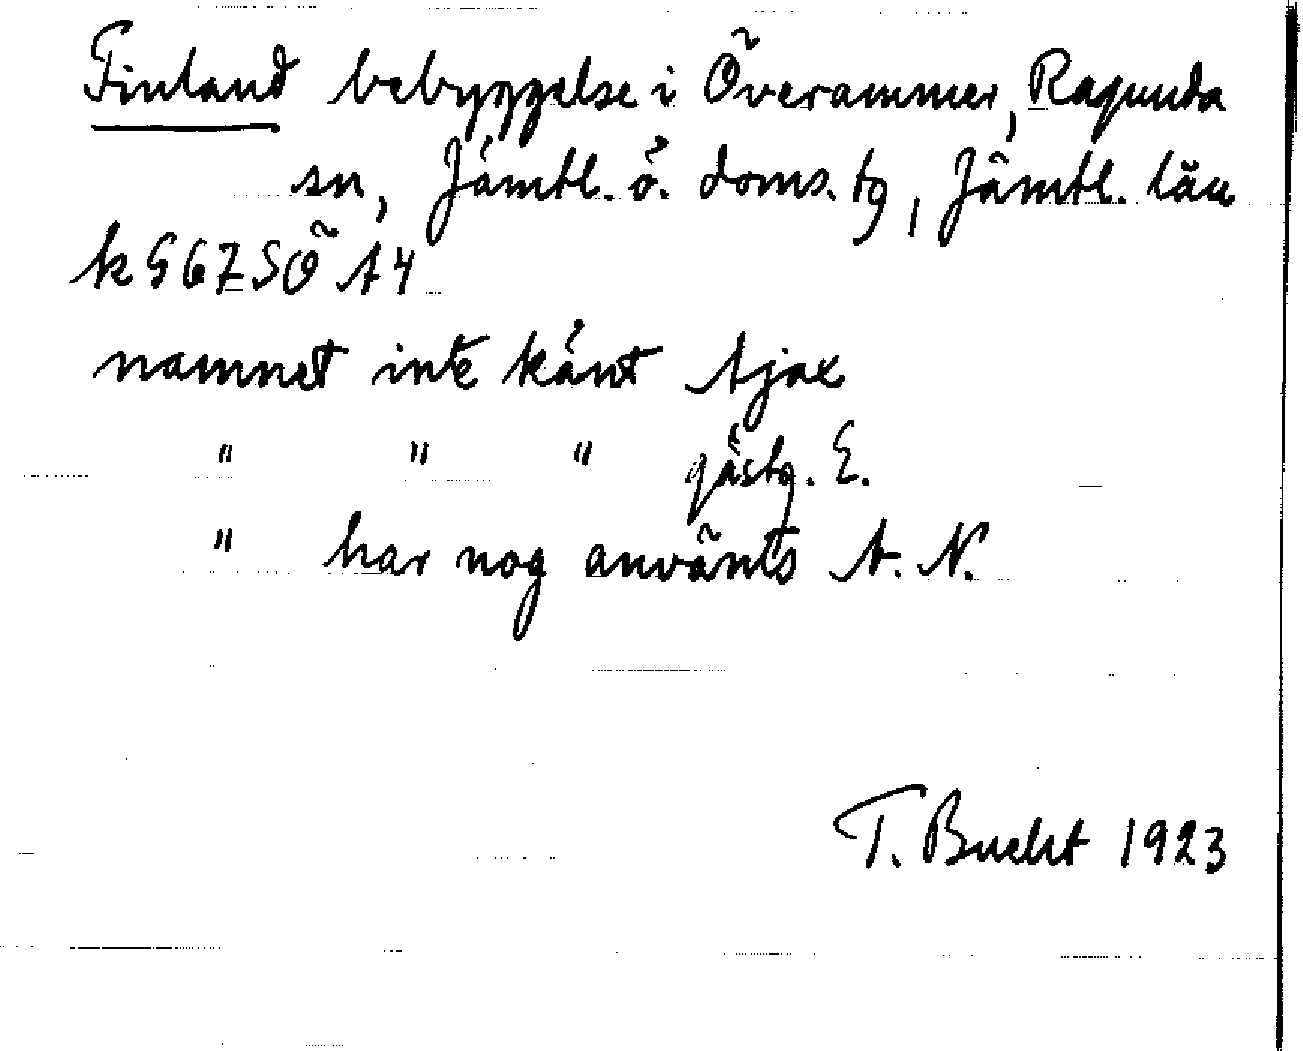 Finland bebyggelse i Överammer, Ragunda
sn, Jämtl. ö. doms. tg, Jämtl. län
k G 67 SÖ A4
namnet inte känt Ajax
" " " gästg. E.
" har nog använts A. N.
T. Bucht 1923